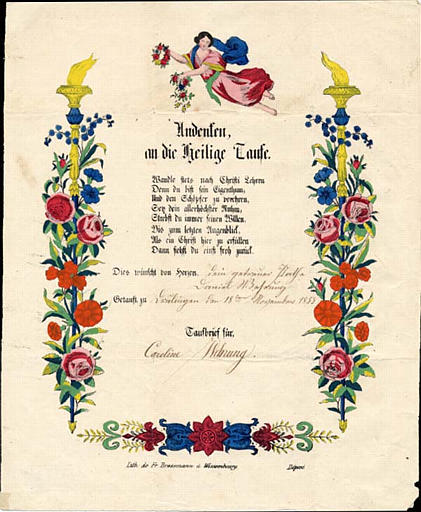 Andenken,
an die Heilige Taufe.
Wandle stets nach Christi Lehren
Denn du bist sein Eigenthum,
Und den Schöpfer zu verehren,
Sey dein allerhöchster Ruhm,
Strebst du immer seinen Willen,
Bis zum letzten Augenblick,
Als ein Christ hier zu erfüllen
Dann siehst du einst froh zurück.
Dies wünscht von Herzen. dein getreuer
Getauft zu den 18ten November 1855
Taufbrief für,
Caroline
Lith. de Fr. Brassmann à Wissembourg. Déposé